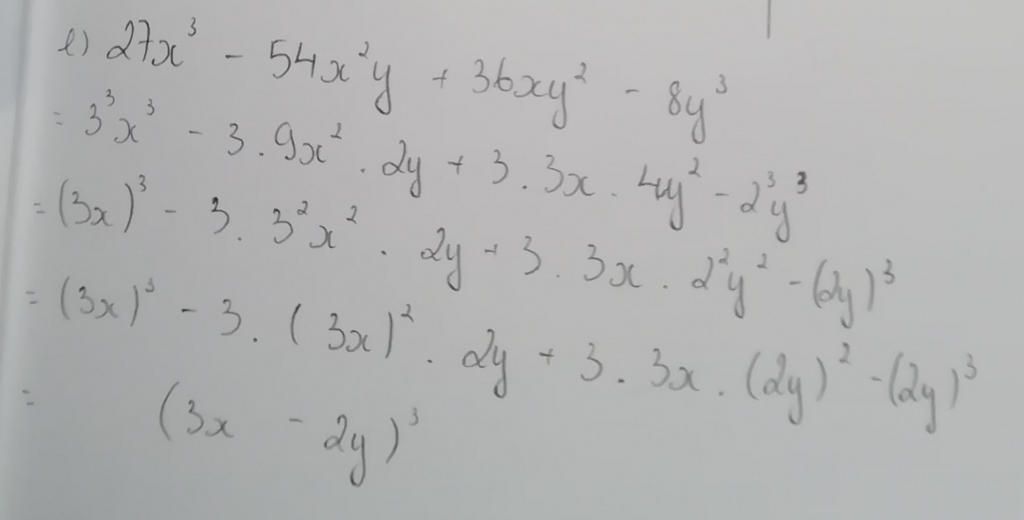 e) 27x³ - 54x²y + 36xy² - 8y³
= 3³x³ - 3 . 9x² . 2y + 3 . 3x . 4y² - 2³y³
= (3x)³ - 3 . 3²x² . 2y + 3 . 3x . 2²y² - (2y)³
= (3x)³ - 3 . (3x)² . 2y + 3 . 3x . (2y)² - (2y)³
= (3x - 2y)³